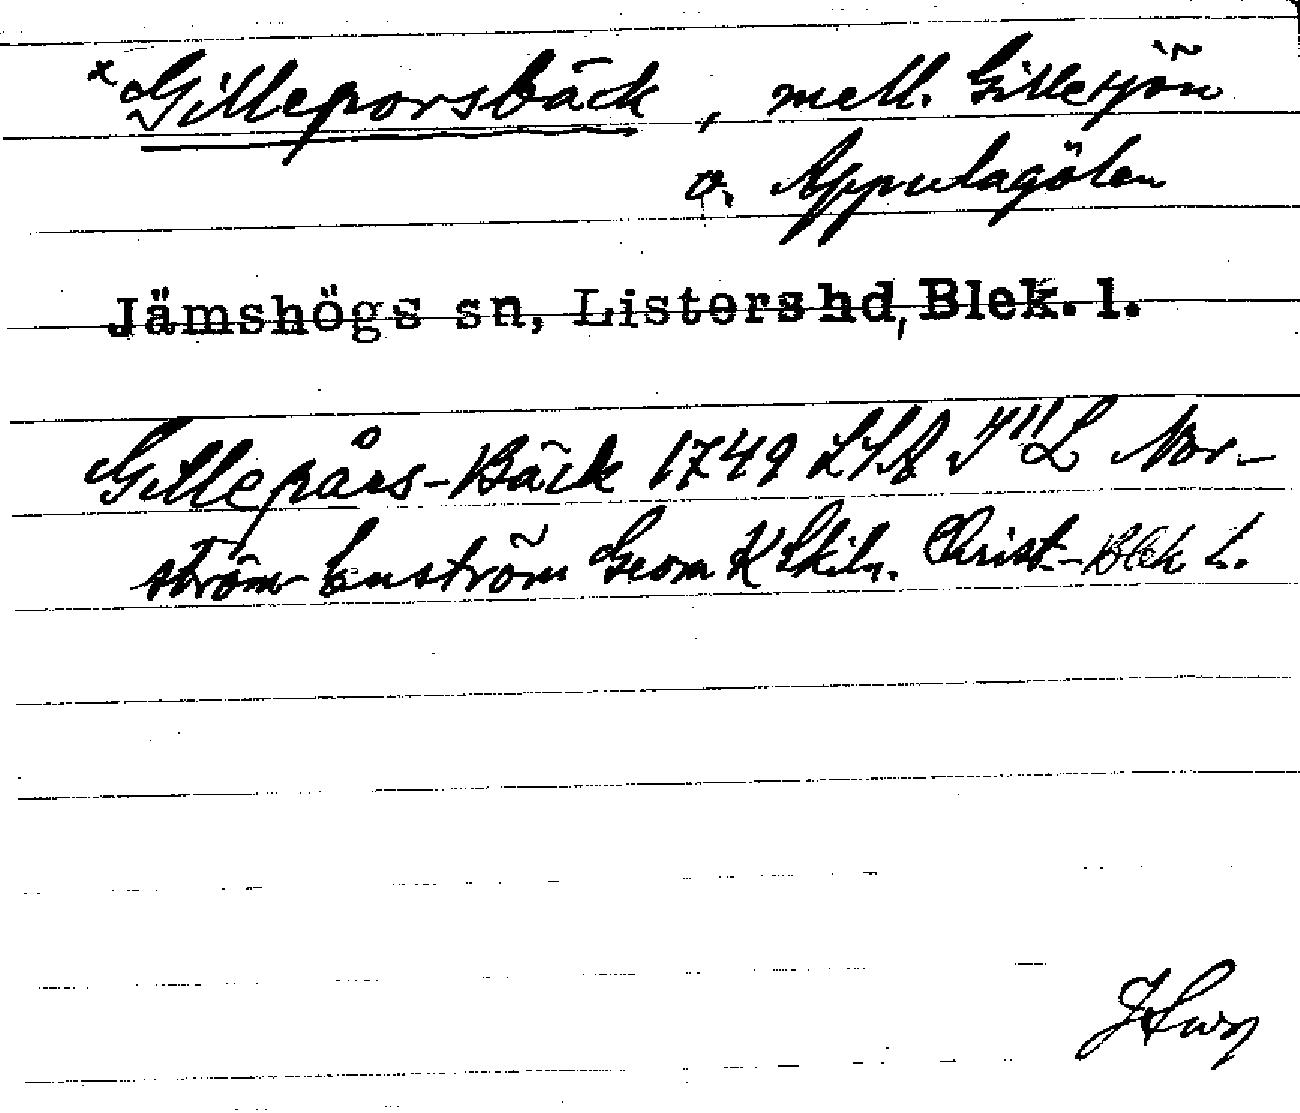 x Gilleporsbäck, mell. Gillesjön
o. Appulagölen
Jämshögs sn, Listers hd, Blek. l.
Gillepårs-Bäck 1749 LSA I"L Nor-
ström-Enström Geom K Skiln. Christ.-Blek L.